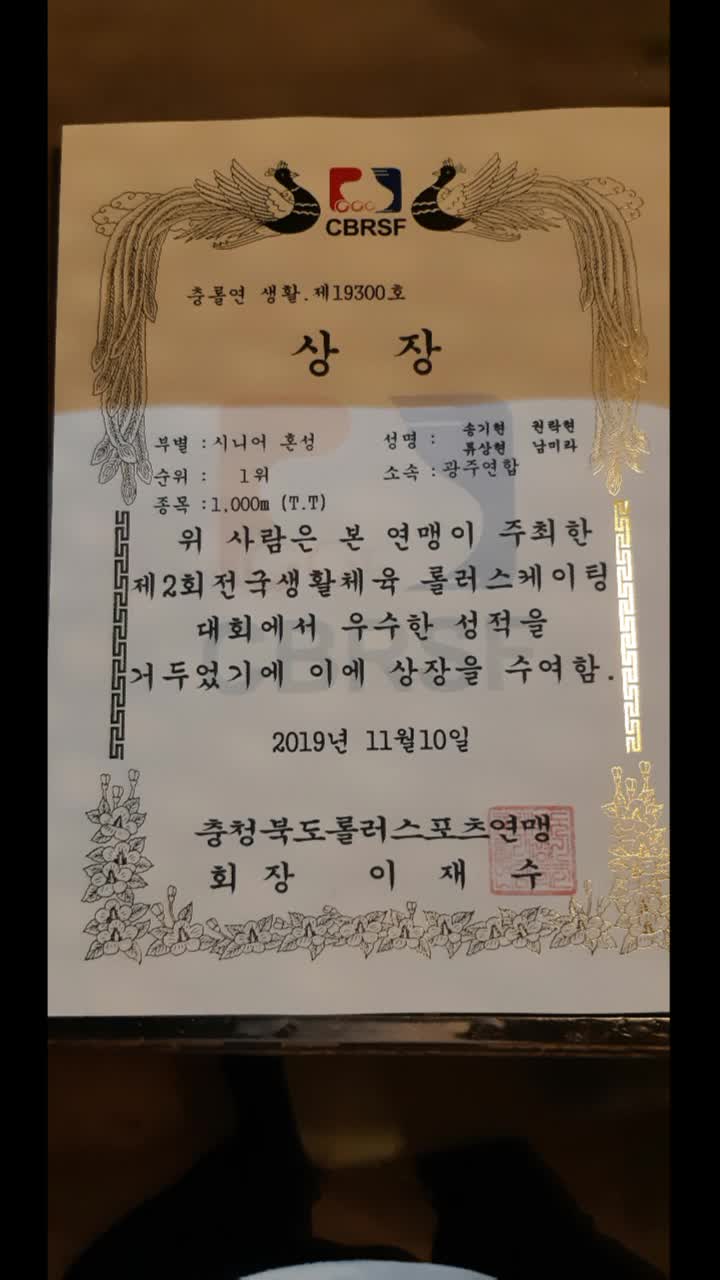 CBRSF
충롤연 생활.제19300호
상 장
부별 : 시니어 혼성
성명 : 송기현 권락현
류상현 남미라
순위 : 1위
소속 : 광주연합
종목 : 1,000m (T.T)
위 사람은 본 연맹이 주최한
제2회전국생활체육 롤러스케이팅
대회에서 우수한 성적을
거두었기에 이에 상장을 수여함.
2019년 11월10일
충청북도롤러스포츠연맹
회 장 이 재 수